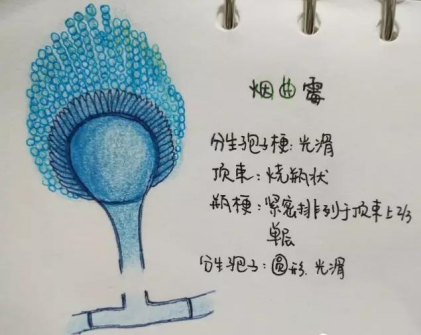 烟曲霉
分生孢子梗:光滑
顶束:烧瓶状
瓶梗:紧密排列于顶束上2/3
单层
分生孢子:圆形.光滑